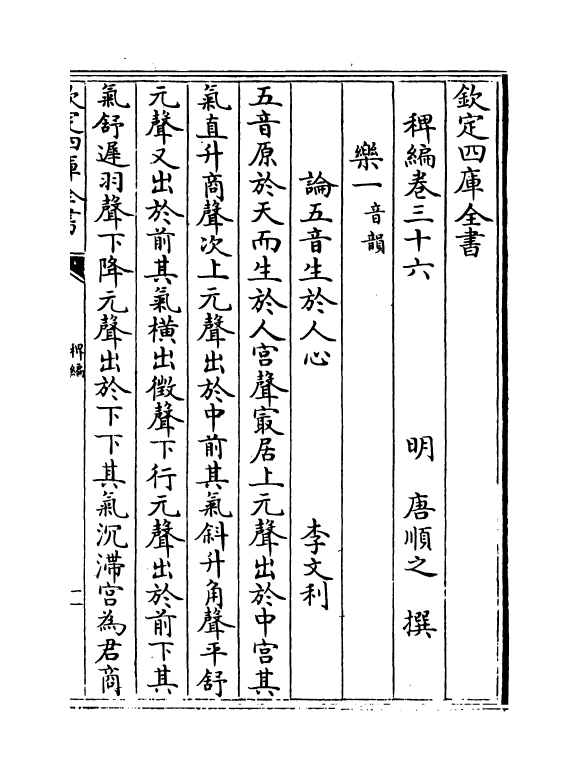 欽定四庫全書
稗編卷三十六　明　唐順之　撰
樂一音韻
論五音生於人心　李文利
五音原於天而生於人宫聲㝡居上元聲出於中宫其
氣直升商聲次上元聲出於中前其氣斜升角聲平舒
元聲又出於前其氣橫出徵聲下行元聲出於前下其
氣舒遲羽聲下降元聲出於下下其氣沉滯宫為君商
欽定四庫全書
稗編
二